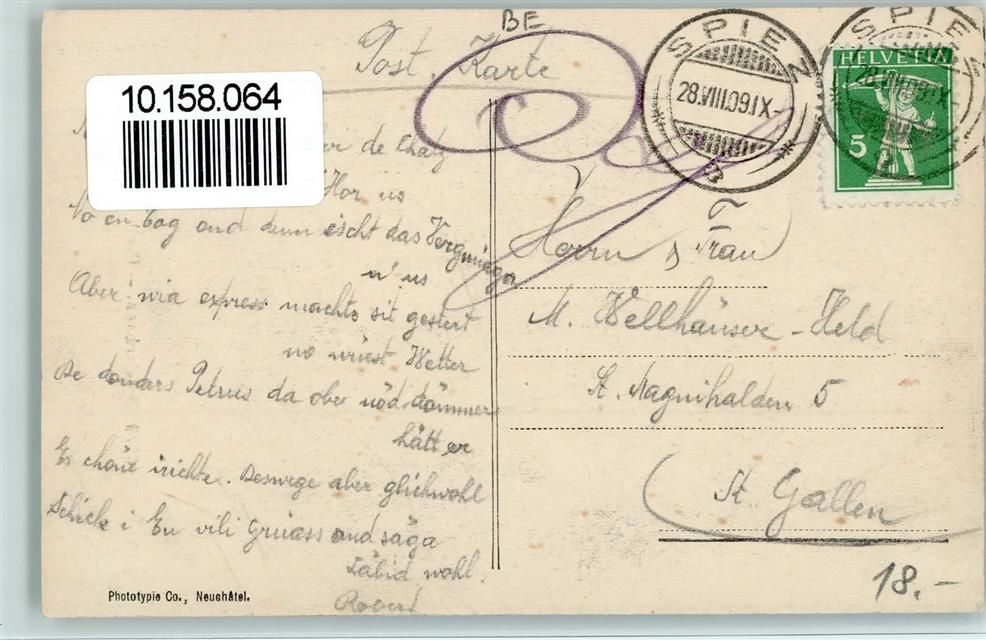 BE
Post Karte
10.158.064
SPIEZ
28.VIII.09.IX-
SPIEZ
28.VIII.09.IX-
HELVETIA
5
de Chatz
Hor us
No en Tag ond denn ischt das Vergnüega
n' us
Aber wia express machts sit gestert
no wüest Wetter
De donders Petrus da ober nöd
hätt er
Es chöne irichte. Deswege aber glichwohl
Schick i Eu vili Grüass ond säga
Läbid wohl.
Robert
Herrn & Frau
M. Wellhäuser-Held
St. Magnihalden 5
St. Gallen
Phototypie Co., Neuchâtel.
18.-